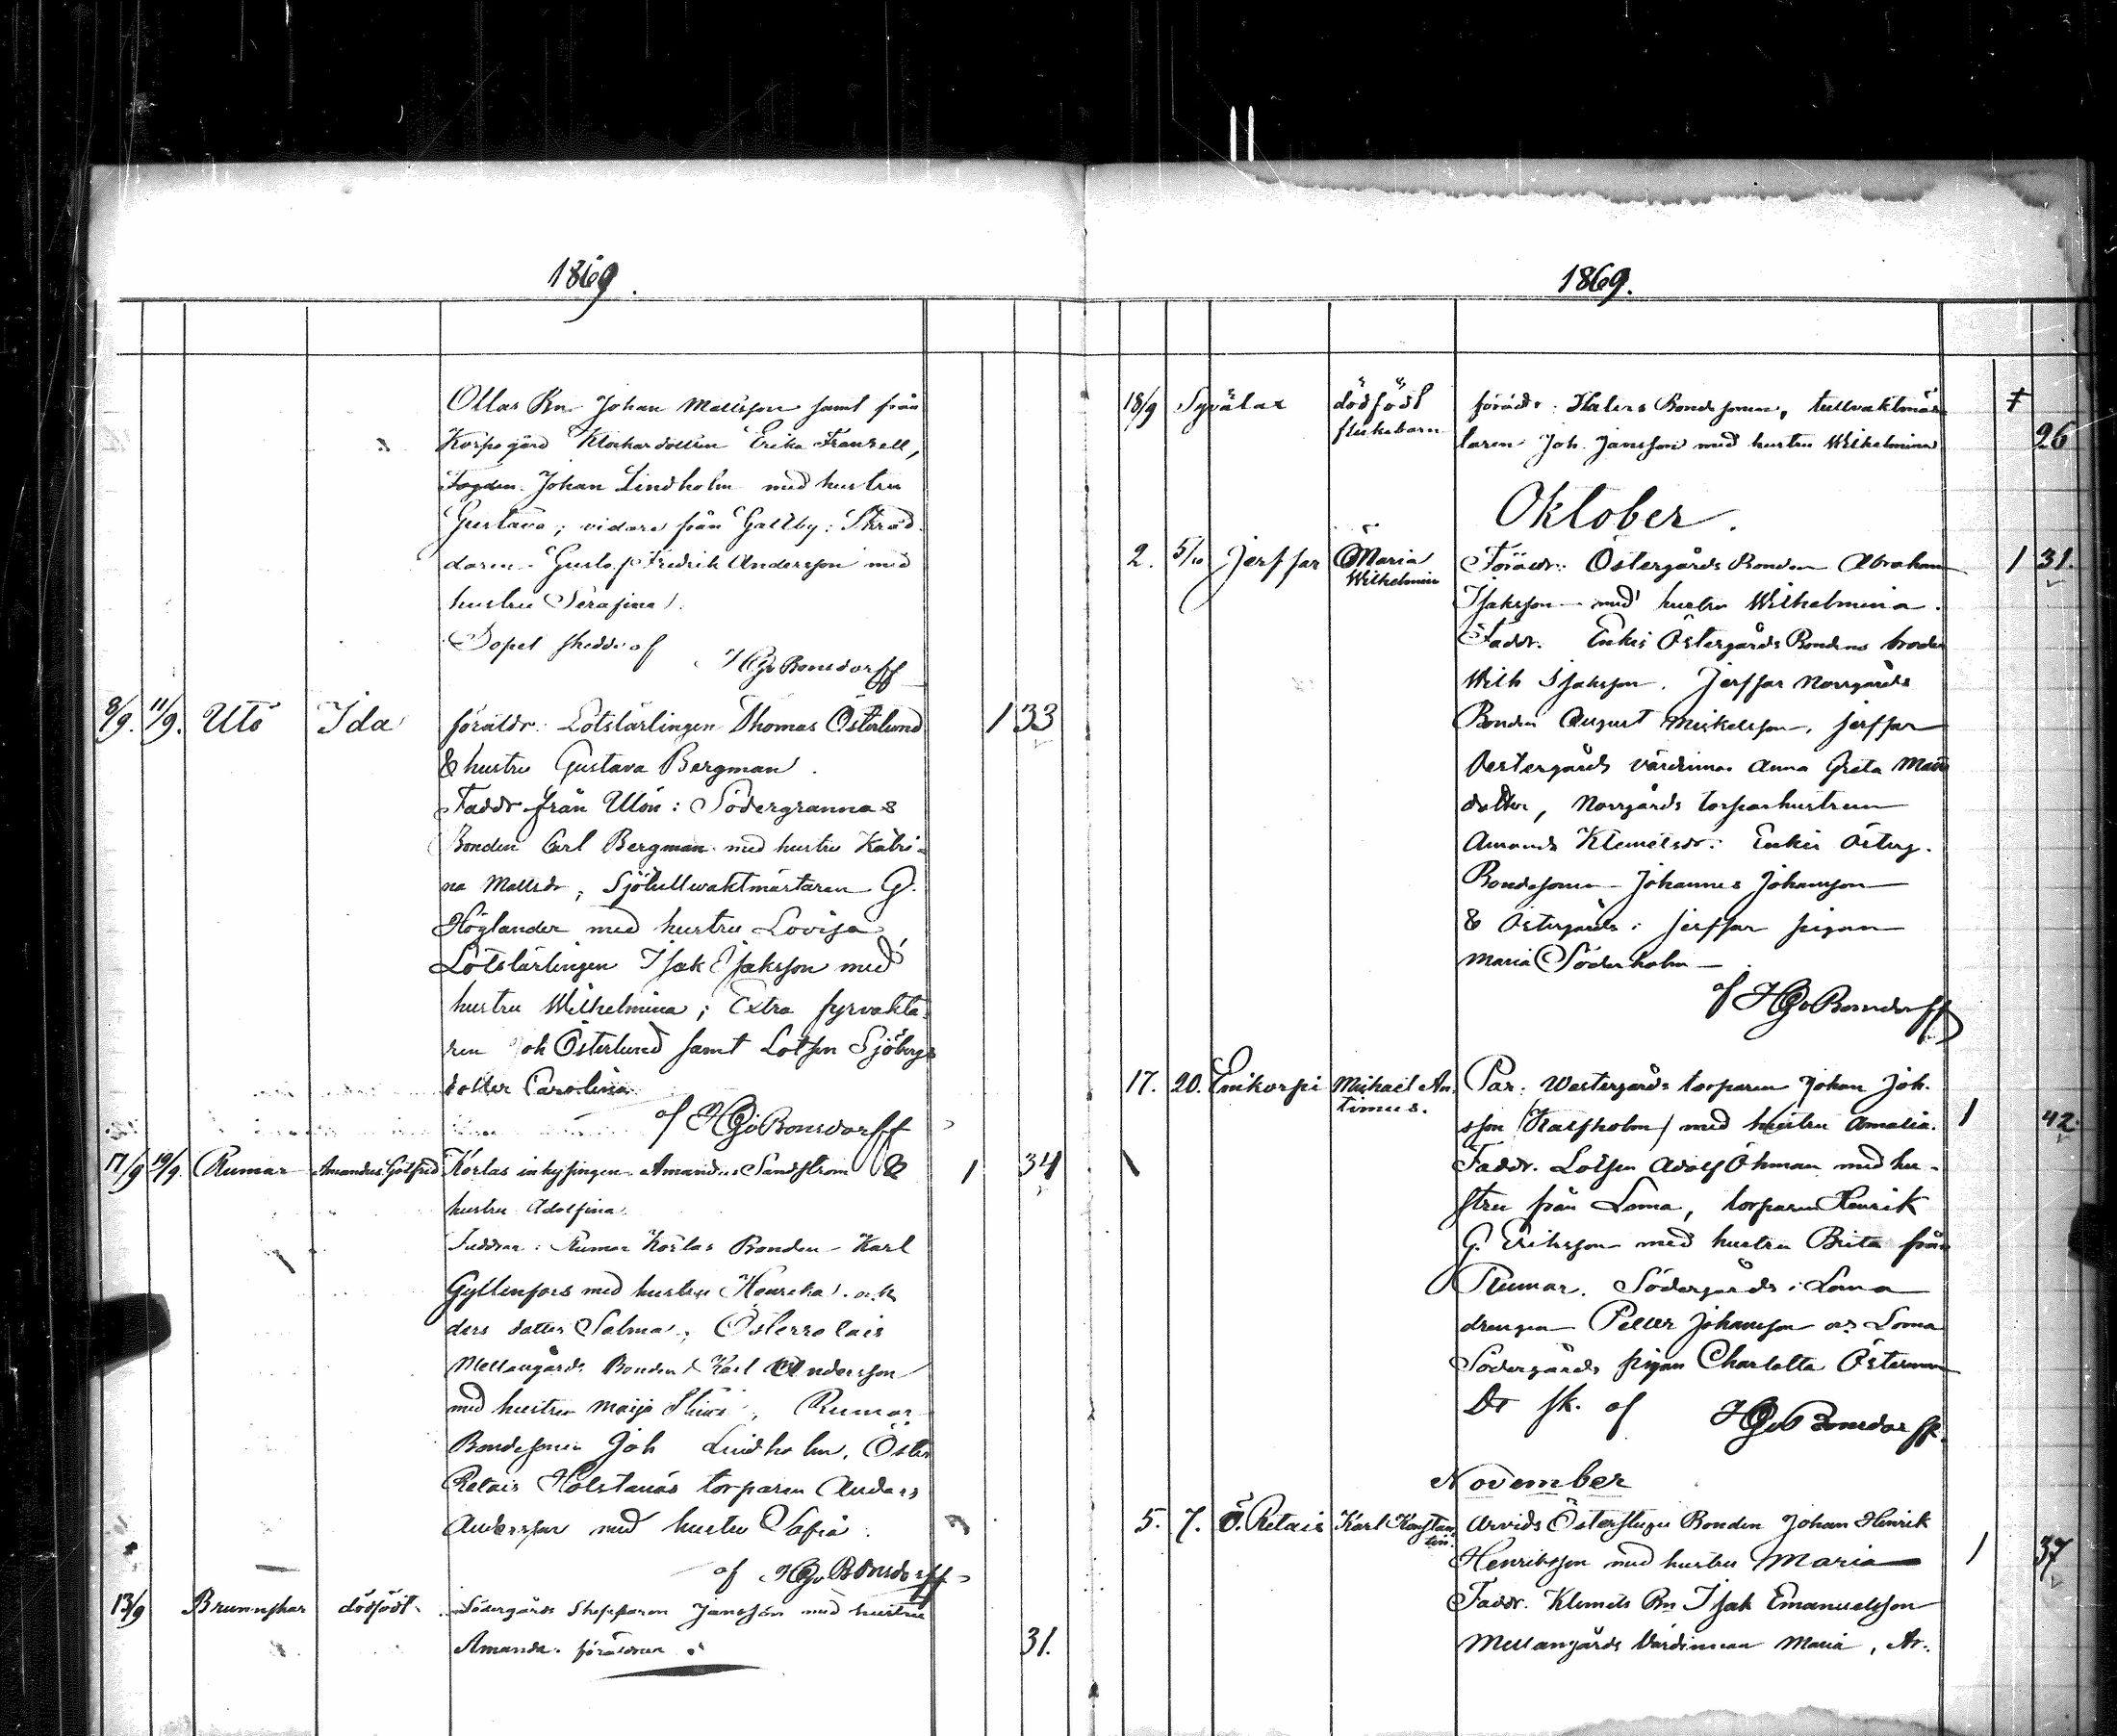 1869.
Ollas Bn Johan Mattsson samt från
Korpo gård Klockardottren Erika Franzell,
Fogden Johan Lindholm med hustru
Gustava; vidare från Galtby: Skräd-
daren Gustaf Fredrik Andersson med
hustru Serafina.
Dopet skedde af
HGvBonsdorff
8/9. 11/9. Utö Ida föräldr: Lotslärlingen Thomas Österlund 1 33
& hustru Gustava Bergman.
Faddr från Utön: Södergrannas
Bonden Carl Bergman med hustru Katri-
na Mattsdr; Sjötullvaktmästaren G.
Höglander med hustru Lovisa,
Lotslärlingen Isak Isaksson med
hustru Wilhelmina; Extra fyrvakta-
ren Joh Österlund samt Lotsen Sjöbergs
dotter Carolina.
af HGvBonsdorff
17/9 19/9. Rumar Amandus Gotfred Korlas inhysingen Amandus Sandström & 1 34
hustru Adolfina.
Faddrar: Rumar Korlas Bonden Karl
Gyllenfors med hustru Henrika och
ders dotter Salma; Österretais
Mellangårds Bonden Karl Andersson
med hustru Maija Stina, Rumar
Bondesonen Joh Lindholm, Öster
Retais Holstanäs torparen Anders
Andersson med hustru Sofia.
af HGvBonsdorff
13/9 Brunnskar dödfödt Södergårds Skepparen Jansson med hustru
Amanda föräldrar 31.
1869.
18/9 Syvälax dödfödt föräldr: Halers Bondesonen, tullvaktmäs- †
flickebarn taren Joh. Jansson med hustru Wilhelmina 26
Oktober.
2. 5/10 Jerfsar Maria Föräldr: Östergårds Bonden Abraham 1 31.
Wilhelmin Isaksson med hustru Wilhelmina.
Faddr. Enkis Östergårds Bondens broder
Wilh Isaksson. Jerfsar Norrgårds
Bonden August Mickelsson, Jerfsar
Vestergårds värdinna Anna Greta Mats
dotter, Norrgårds torparhustrun
Amanda Klemetsdr. Enkis Österg.
Bondesonen Johannes Johansson
& Östergårds i Jerfsar pigan
Maria Söderholm
af HGvBonsdorff
17. 20. Ennikorpi Mickael An- Par: Westergårds torparen Johan Joh.
timus. sson (Kalfholm) med hustru Amalia. 1 42.
Faddr. Lotsen Adolf Öhman med hu-
stru från Loma, torparen Henrik
G. Eriksson med hustru Brita från
Rumar. Södergårds i Loma
drengen Petter Johansson o Loma
Södergårds pigan Charlotta Österman
Dt sk. af HGvBonsdorff.
November
5. 7. Ö. Retais Karl Konstan- Arvids Österstugu Bonden Johan Henrik
tin. Henriksson med hustru Maria 1 37
Faddr. Klemets Bn Isak Emanuelsson
Mellangårds Värdinnan Maria, Ar-